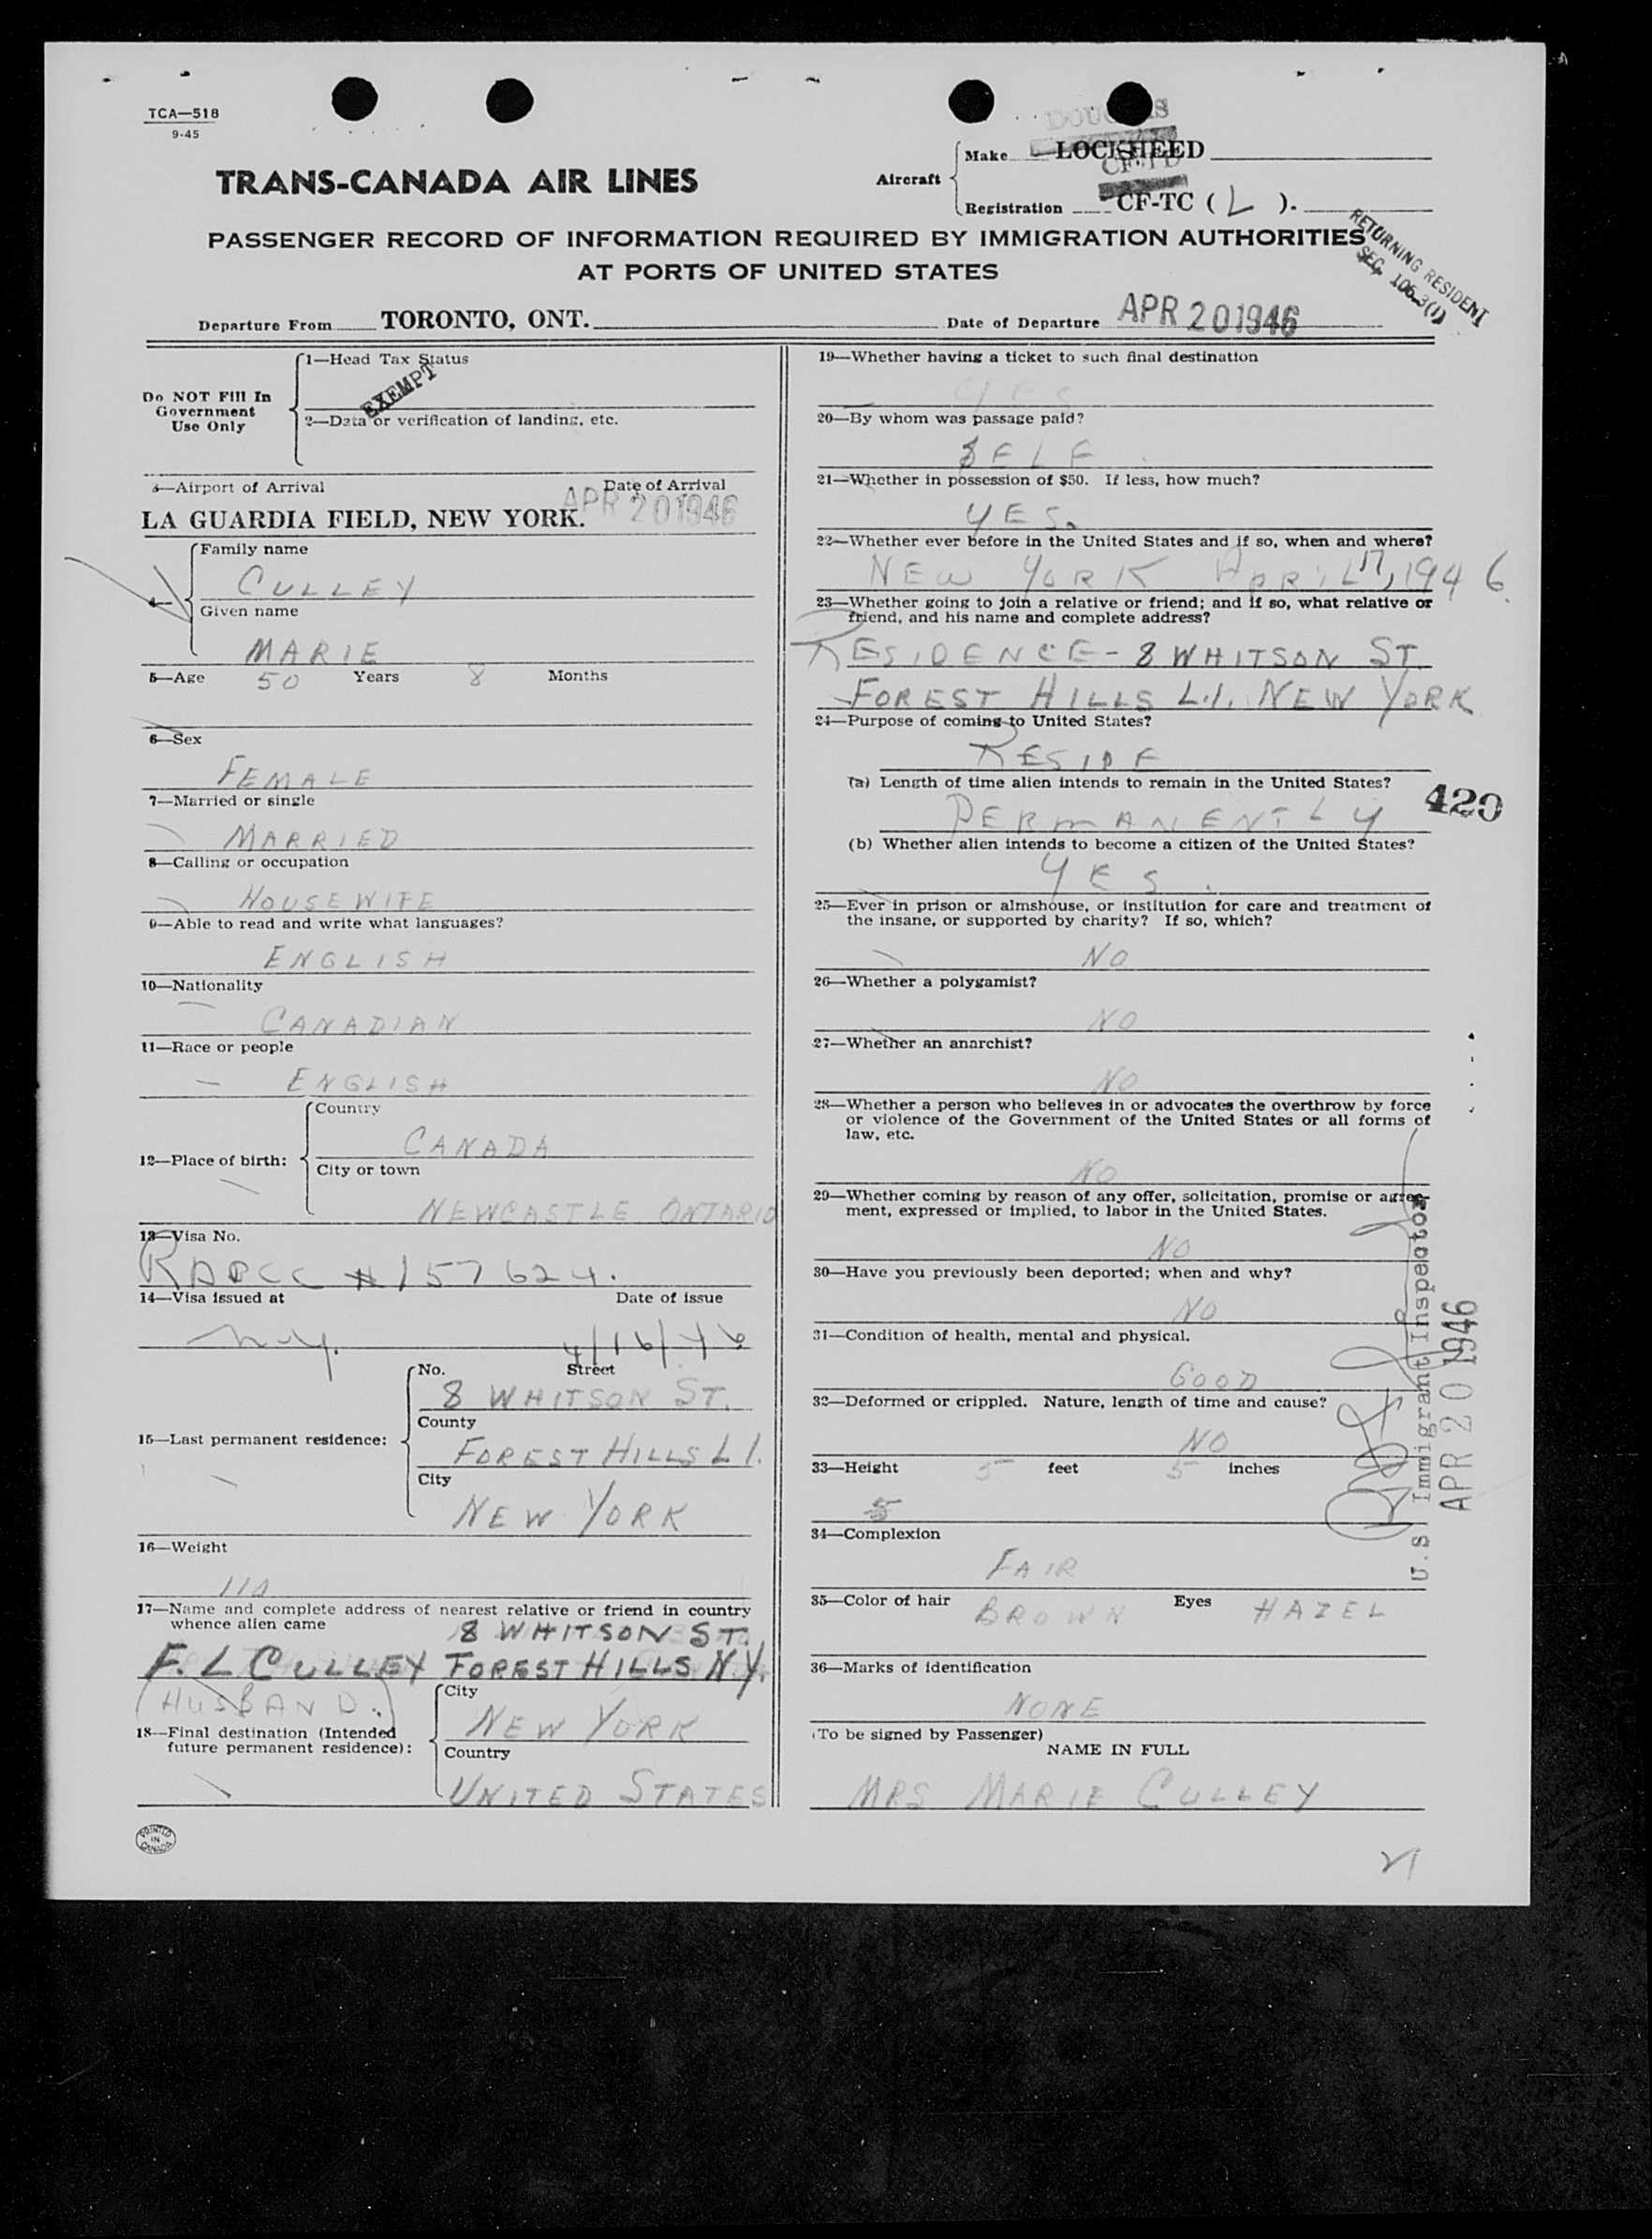 TCA—518
9-45
TRANS-CANADA AIR LINES
Aircraft
Make LOCKHEED
Registration CF-TC ( L ).
PASSENGER RECORD OF INFORMATION REQUIRED BY IMMIGRATION AUTHORITIES
AT PORTS OF UNITED STATES
RETURNING RESIDENT
SEC. 105.3(1)
Departure From TORONTO, ONT.
Date of Departure APR 20 1946
Do NOT Fill In
Government
Use Only
1—Head Tax Status
EXEMPT
2—Data or verification of landing, etc.
3—Airport of Arrival Date of Arrival
LA GUARDIA FIELD, NEW YORK. APR 20 1946
4—
Family name
CULLEY
Given name
MARIE
5—Age 50 Years 8 Months
6—Sex
FEMALE
7—Married or single
MARRIED
8—Calling or occupation
HOUSEWIFE
9—Able to read and write what languages?
ENGLISH
10—Nationality
CANADIAN
11—Race or people
ENGLISH
12—Place of birth:
Country
CANADA
City or town
NEWCASTLE ONTARIO
13—Visa No.
#157624.
14—Visa issued at Date of issue
N.Y. 4/16/46
15—Last permanent residence:
No. Street
8 WHITSON ST.
County
FOREST HILLS L.I.
City
NEW YORK
16—Weight
110
17—Name and complete address of nearest relative or friend in country
whence alien came
8 WHITSON ST.
F. L CULLEY FOREST HILLS N.Y.
(HUSBAND.)
18—Final destination (Intended
future permanent residence):
City
NEW YORK
Country
UNITED STATES
PRINTED
IN
CANADA
19—Whether having a ticket to such final destination
YES
20—By whom was passage paid?
SELF.
21—Whether in possession of $50. If less, how much?
YES.
22—Whether ever before in the United States and if so, when and where?
NEW YORK APRIL 17, 1946.
23—Whether going to join a relative or friend; and if so, what relative or
friend, and his name and complete address?
RESIDENCE - 8 WHITSON ST.
FOREST HILLS L.I. NEW YORK
24—Purpose of coming to United States?
RESIDE
(a) Length of time alien intends to remain in the United States?
PERMANENTLY
420
(b) Whether alien intends to become a citizen of the United States?
YES.
25—Ever in prison or almshouse, or institution for care and treatment of
the insane, or supported by charity? If so, which?
NO
26—Whether a polygamist?
NO
27—Whether an anarchist?
NO
28—Whether a person who believes in or advocates the overthrow by force
or violence of the Government of the United States or all forms of
law, etc.
NO
29—Whether coming by reason of any offer, solicitation, promise or agree-
ment, expressed or implied, to labor in the United States.
NO
30—Have you previously been deported; when and why?
NO
31—Condition of health, mental and physical.
GOOD
32—Deformed or crippled. Nature, length of time and cause?
NO
33—Height 5 feet 5 inches
5
34—Complexion
FAIR
35—Color of hair BROWN Eyes HAZEL
36—Marks of identification
NONE
(To be signed by Passenger)
NAME IN FULL
MRS MARIE CULLEY
U.S Immigrant Inspector
APR 20 1946
21